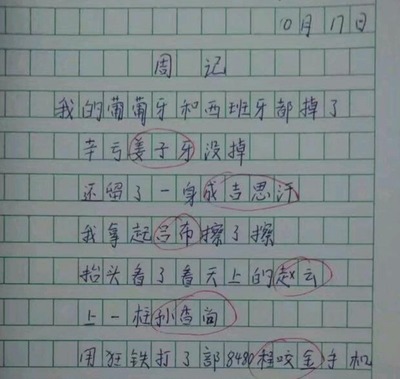 10月17日
周记
我的葡葡牙和西班牙都掉了
幸亏姜子牙没掉
还留了一身成吉思汗
我拿起吕布擦了擦
抬头看了看天上的赵云
上一柱孙香向
用狂铁打了部8480程咬金手机